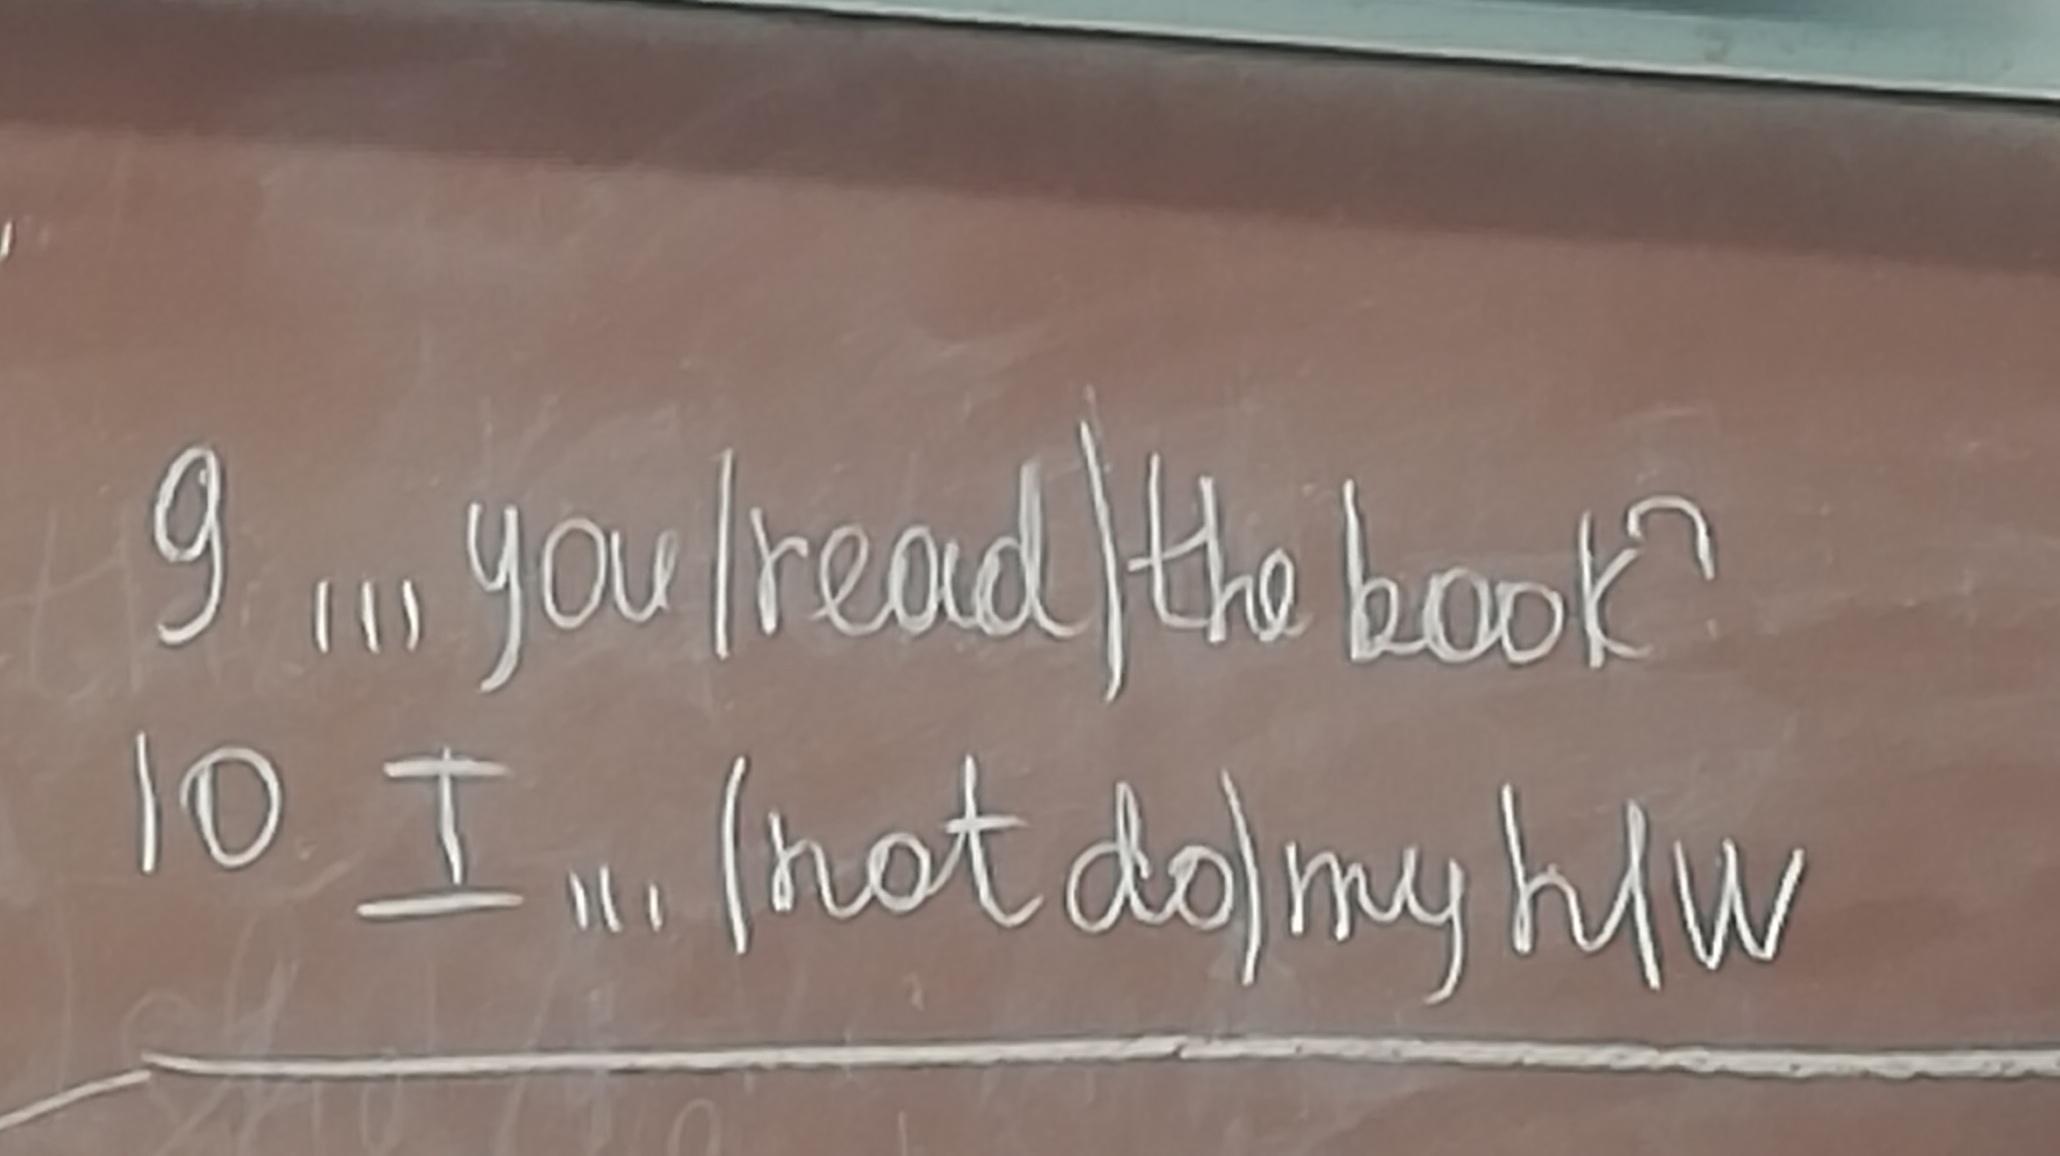 9 ... you (read) the book?
10 I ... (not do) my h/w